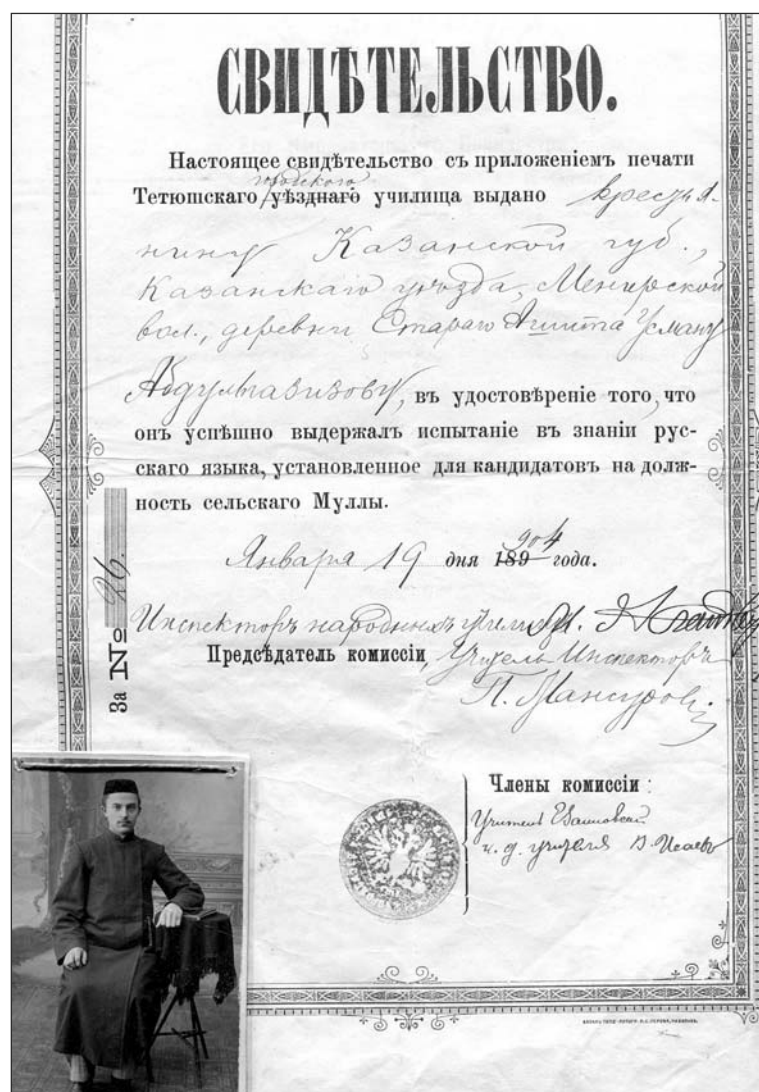 СВИДѢТЕЛЬСТВО.
Настоящее свидѣтельство съ приложеніемъ печати
городского
Тетюшскаго уѣзднаго училища выдано крестья-
нину Казанской губ.,
Казанскаго уѣзда, Менгерской
вол., деревни Стараго Ашита Усману
Абдулгазизову, въ удостовѣреніе того, что
онъ успѣшно выдержалъ испытаніе въ знаніи рус-
скаго языка, установленное для кандидатовъ на долж-
ность сельскаго Муллы.
904
Января 19 дня 189 года.
За № 26.
Инспекторъ народныхъ училищъ
Предсѣдатель комиссіи, Учитель Инспекторъ
П. Мансуровъ
Члены комиссіи:
Учитель
и. д. учителя В. Исаевъ